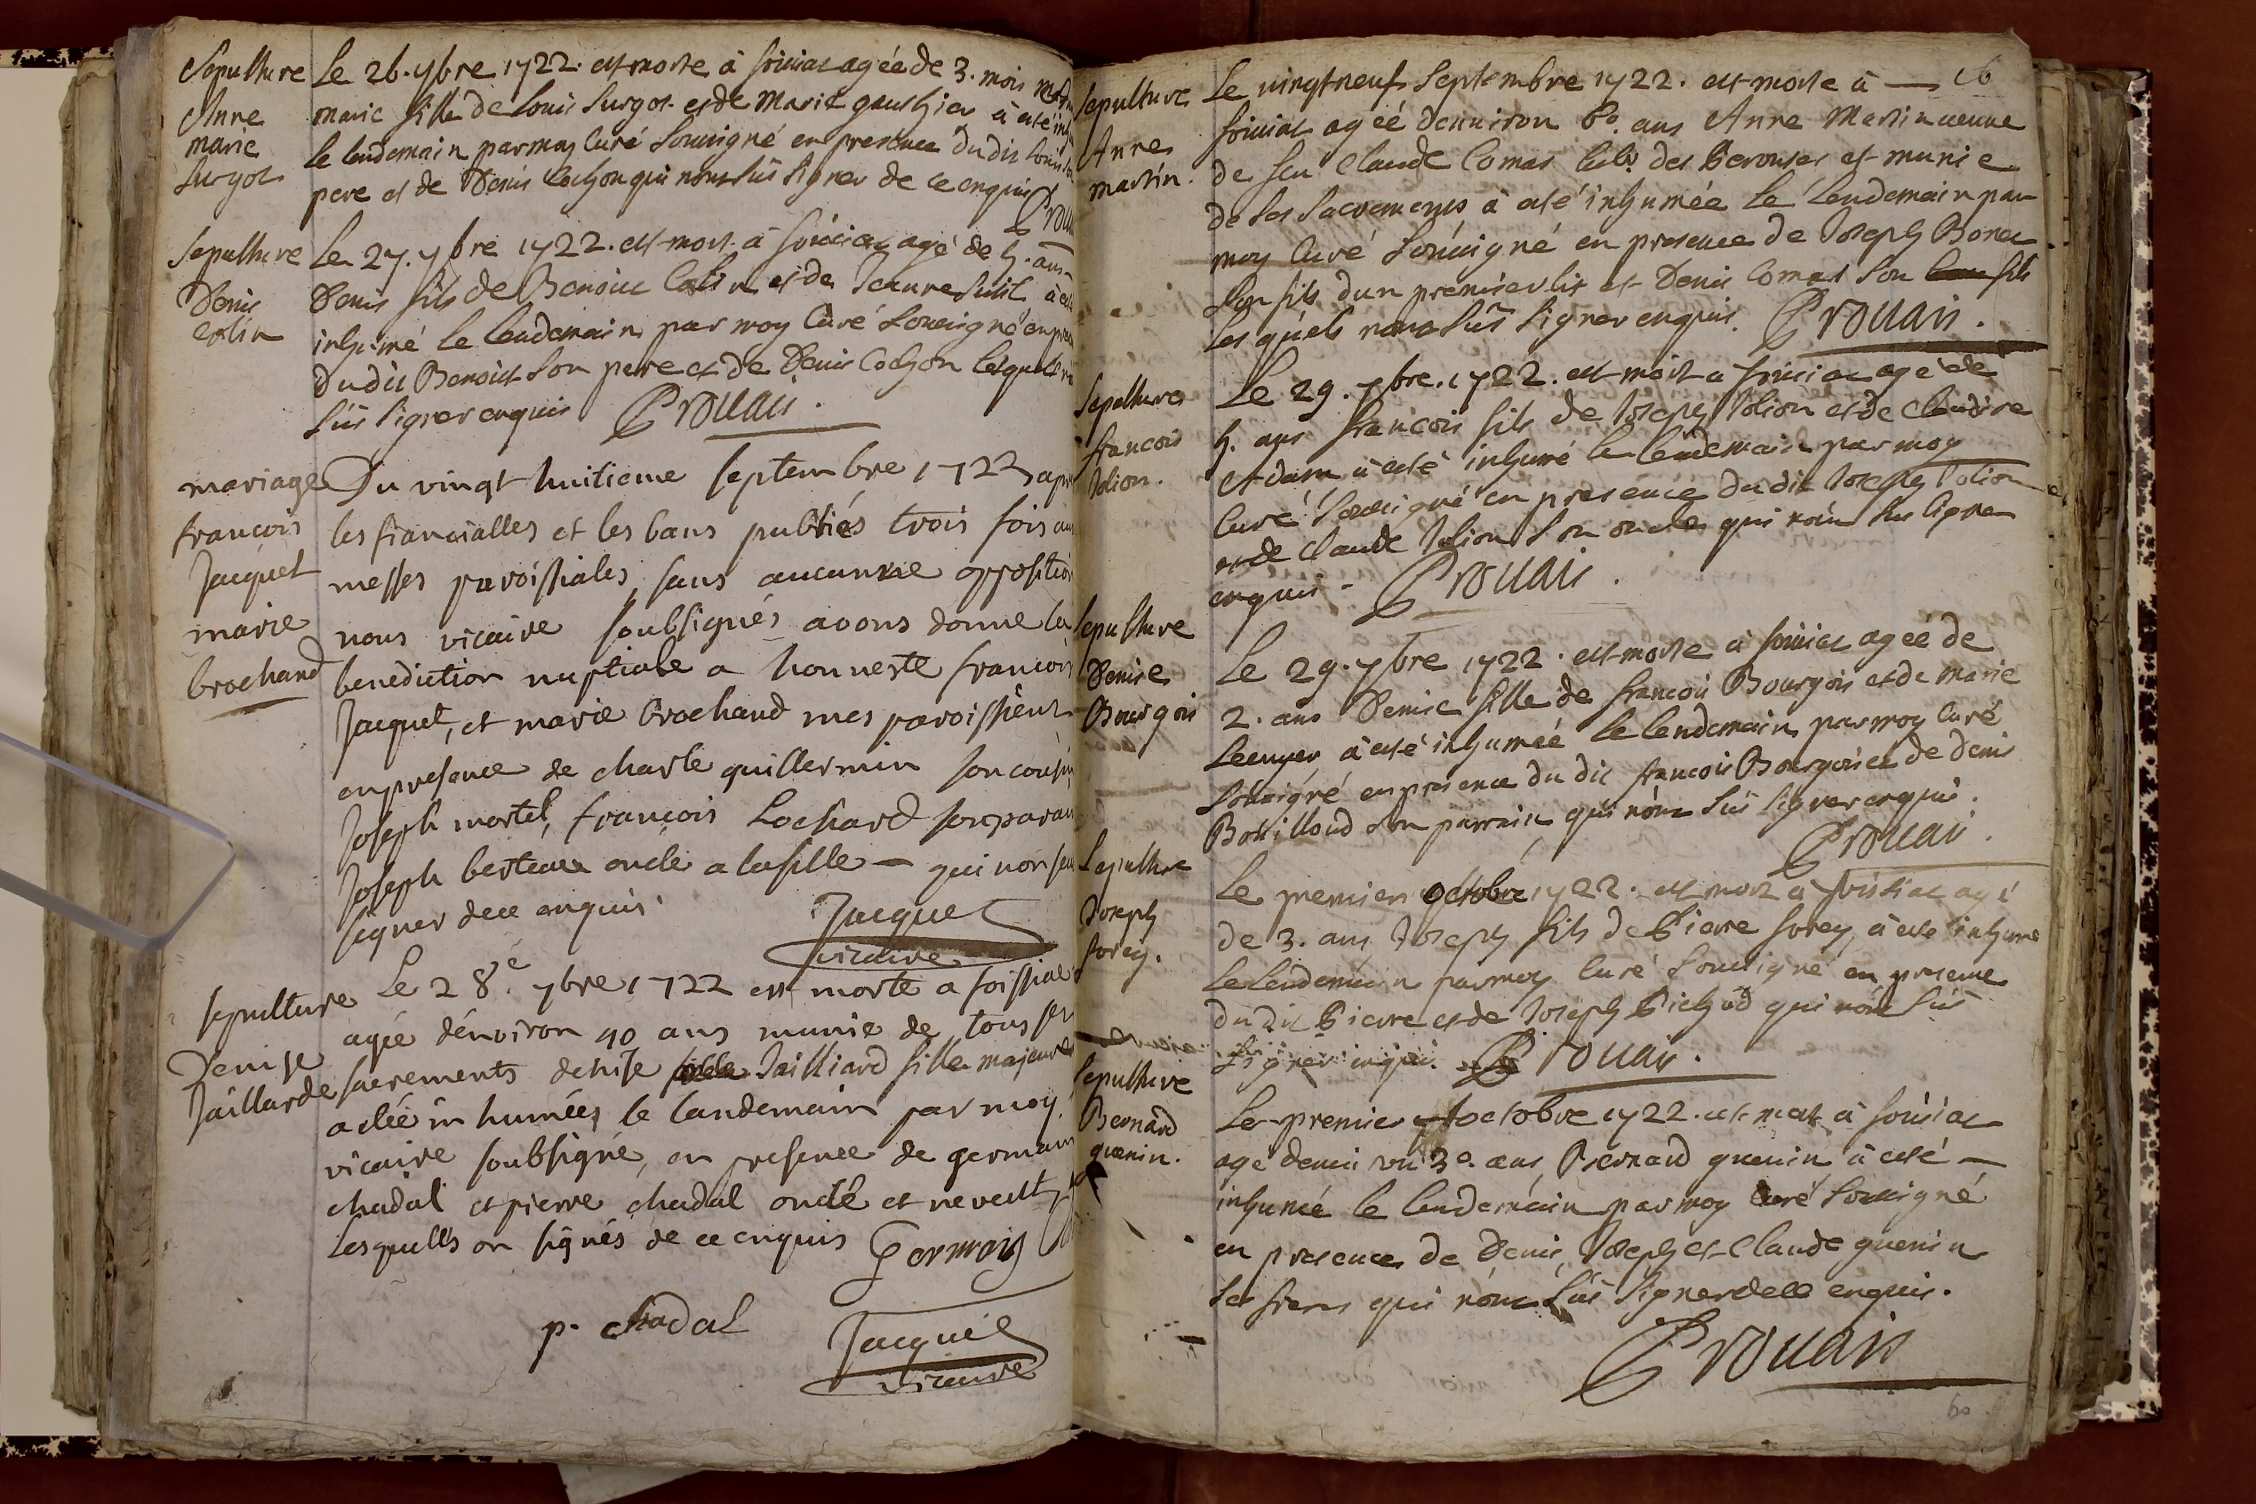 Sepulture
Anne
marie
Surgot
Le 26. 7bre 1722. est morte à foissiat agée de 3. mois
marie fille de Louis Surgot et de Marie gauthier à été
le lendemain par moy Curé Soussigné en presence dudit Louis
pere et de Denis Cochon qui nont sus signer de ce enquis
Sepulture
Denis
Colin
Le 27. 7bre 1722. est mort à foissiat agé de 5. ans
Denis fils de Benoist Colin et de Jeanne à
inhumé le lendemain par moy Curé Soussigné en
dudit Benoist son pere et de Denis Cochon lesquels
sus signer enquis Prouais.
mariage
francois
Jacquet
marie
brochand
Du vingt huitieme septembre 1722 apr
les fiancialles et les bans publiés trois fois
messes paroissiales, sans aucunne opposition
nous vicaire soubsignés avons donne la
benediction nuptiale a honneste francois
Jacquet, et marie brochand mes paroissiens
en presence de charle guillermin son cousin
Joseph mortel, françois Lochard son
Joseph oncle a la fille — qui non
signer dece enquis.
Jacquet
vicaire
sepulture
Denise
Jaillarde
Le 28e. 7bre 1722 est morte a foissiat
agée dénviron 40 ans munie de tous ses
sacrements denise Jailliard fille majeure
a étée in humées le landemain par moy
vicaire soubsigné, en presence de germain
chadal et pierre chadal oncle et neveult
Lesquells on signés de ce enquis Germain
p. chadal
Jacquet
vicaire
16
Sepulture
Anne
Martin.
Le vingt neuf Septembre 1722. est morte à —
foissiat agéé denniron 60. ans Anne Martin veuve
de feu Claude Comas des et munie
de ses Sacremens à eté inhumée Le Lendemain par
moy Curé Soussigné en presence de Joseph
son fils dun premier lit et Denis Comas son fils
Lesquels nont sus signer enquis. Prouais.
Sepulture
francois
Jolion.
Le 29. 7bre. 1722. est mort à foissiat agé de
5. ans francois fils de Joseph Jolion et de Claudine
à eté inhumé le lendemain par moy
Curé Soussigné en presence dudit Joseph Jolion
et de Claude Jolion son oncle qui nont sus signer
enquis - Prouais.
Sepulture
Denise
Bourgois
Le 29. 7bre 1722. est morte à foissiat agéé de
2. ans Denise fille de francois Bourgois et de Marie
à eté inhuméé le lendemain par moy Curé
Soussigné en presence du dit francois Bourgois et de Denis
son parrain qui nont sus signer enquis.
Prouais.
Sepulture
Joseph
Le premier octobre 1722. est mort à foissiat agé
de 3. ans Joseph fils de Pierre à eté inhumé
Le Lendemain par moy Curé Soussigné en presence
du dit Pierre et de Joseph qui nont sus
signer enquis. Prouais.
Sepulture
Bernard
guenin.
Le premier octobre 1722. est mort à foissiat
agé 30. ans Bernard guenin à eté —
inhumé le lendemain par moy Curé Soussigné
en presence de Denis, Joseph et Claude guenin
ses freres qui nont sus signer dece enquis.
Prouais
60